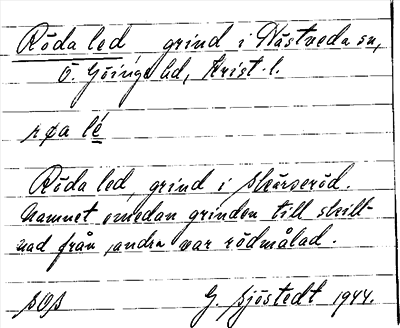 Röda led, grind i Nästveda sn,
Ö. Göinge hd, Krist. l.
røa lé
Röda led, grind i Skärseröd.
Namnet emedan grinden till skill-
nad från andra var rödmålad.
SOS G. Sjöstedt 1944.